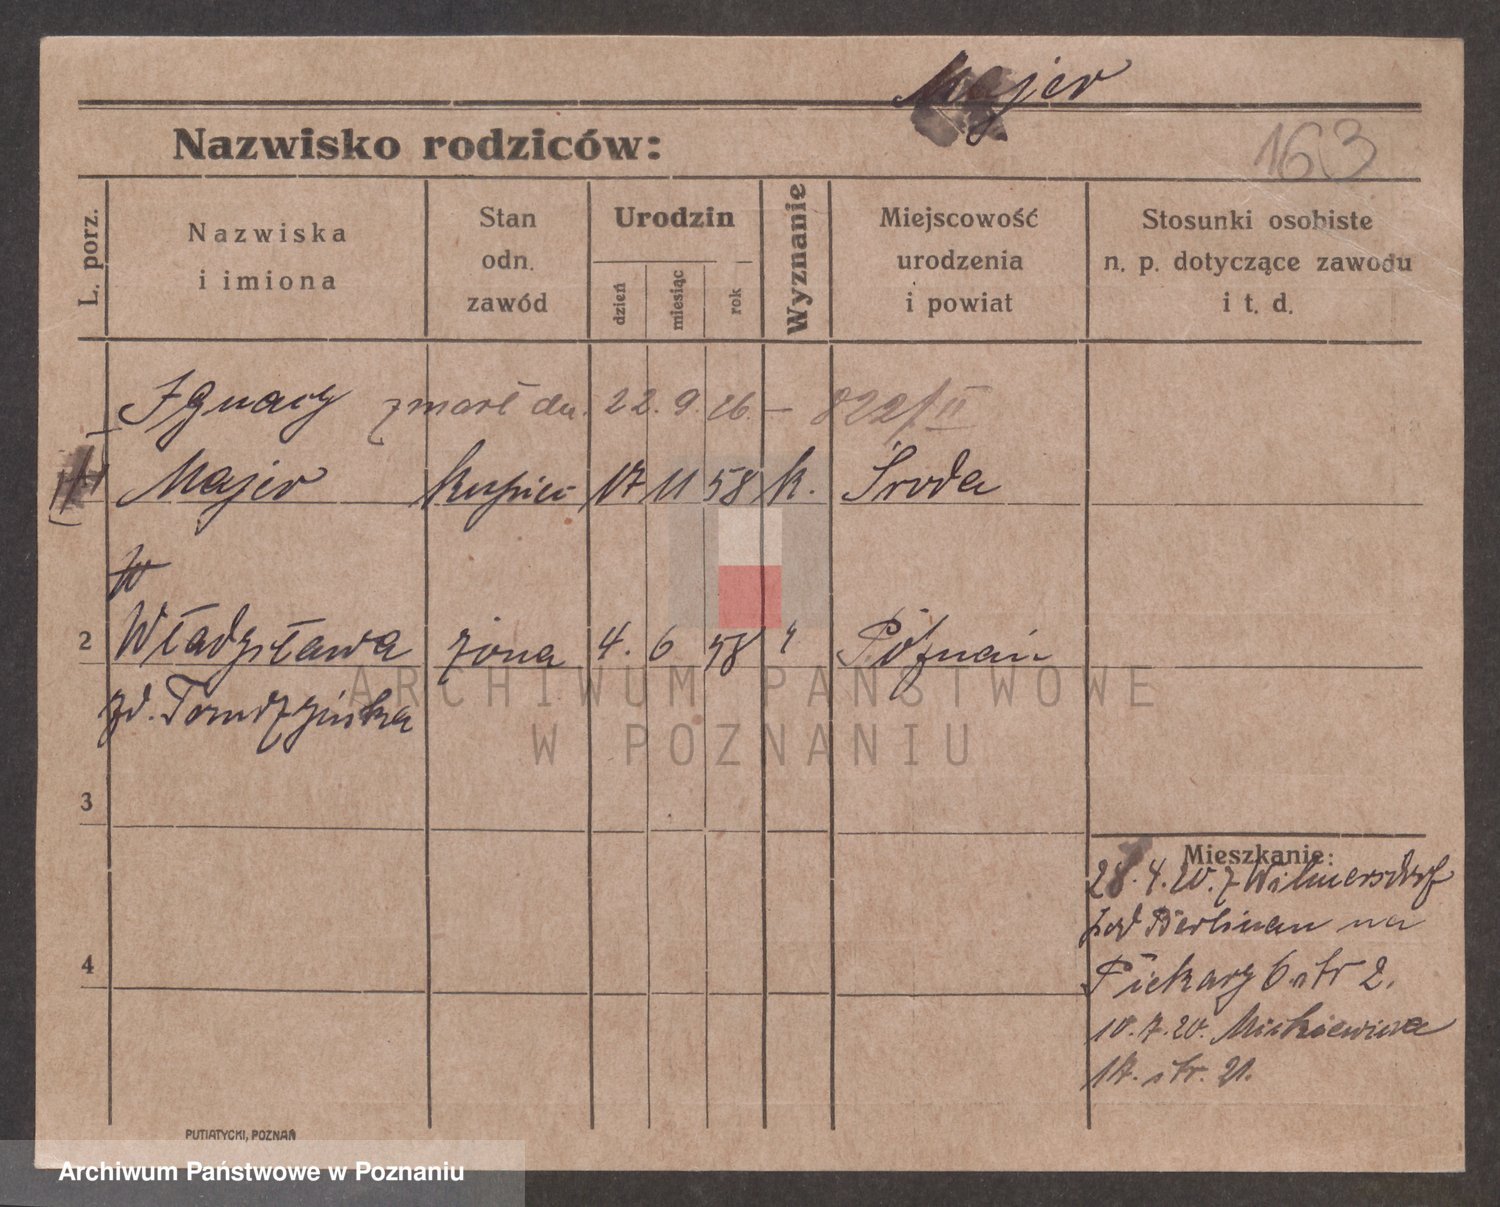 Majer
Nazwisko rodziców:
163
L. porz.
Nazwiska
i imiona
Stan
odn.
zawód
Urodzin
dzień
miesiąc
rok
Wyznanie
Miejscowość
urodzenia
i powiat
Stosunki osobiste
n. p. dotyczące zawodu
i t. d.
Ignacy zmarł dn. 22.9.26. — 822/II
Majer kupiec 17 11 58 k. Środa
W
2 Władysława żona 4. 6 58 " Poznań
zd. Tomczyńska
3
4
Mieszkanie:
28.4.20. z Wilmersdorf
pod Berlinem na
Piekary 6 str 2.
10.7.20. Mickiewicza
17. str. 21.
PUTIATYCKI, POZNAŃ
ARCHIWUM PAŃSTWOWE
W POZNANIU
Archiwum Państwowe w Poznaniu